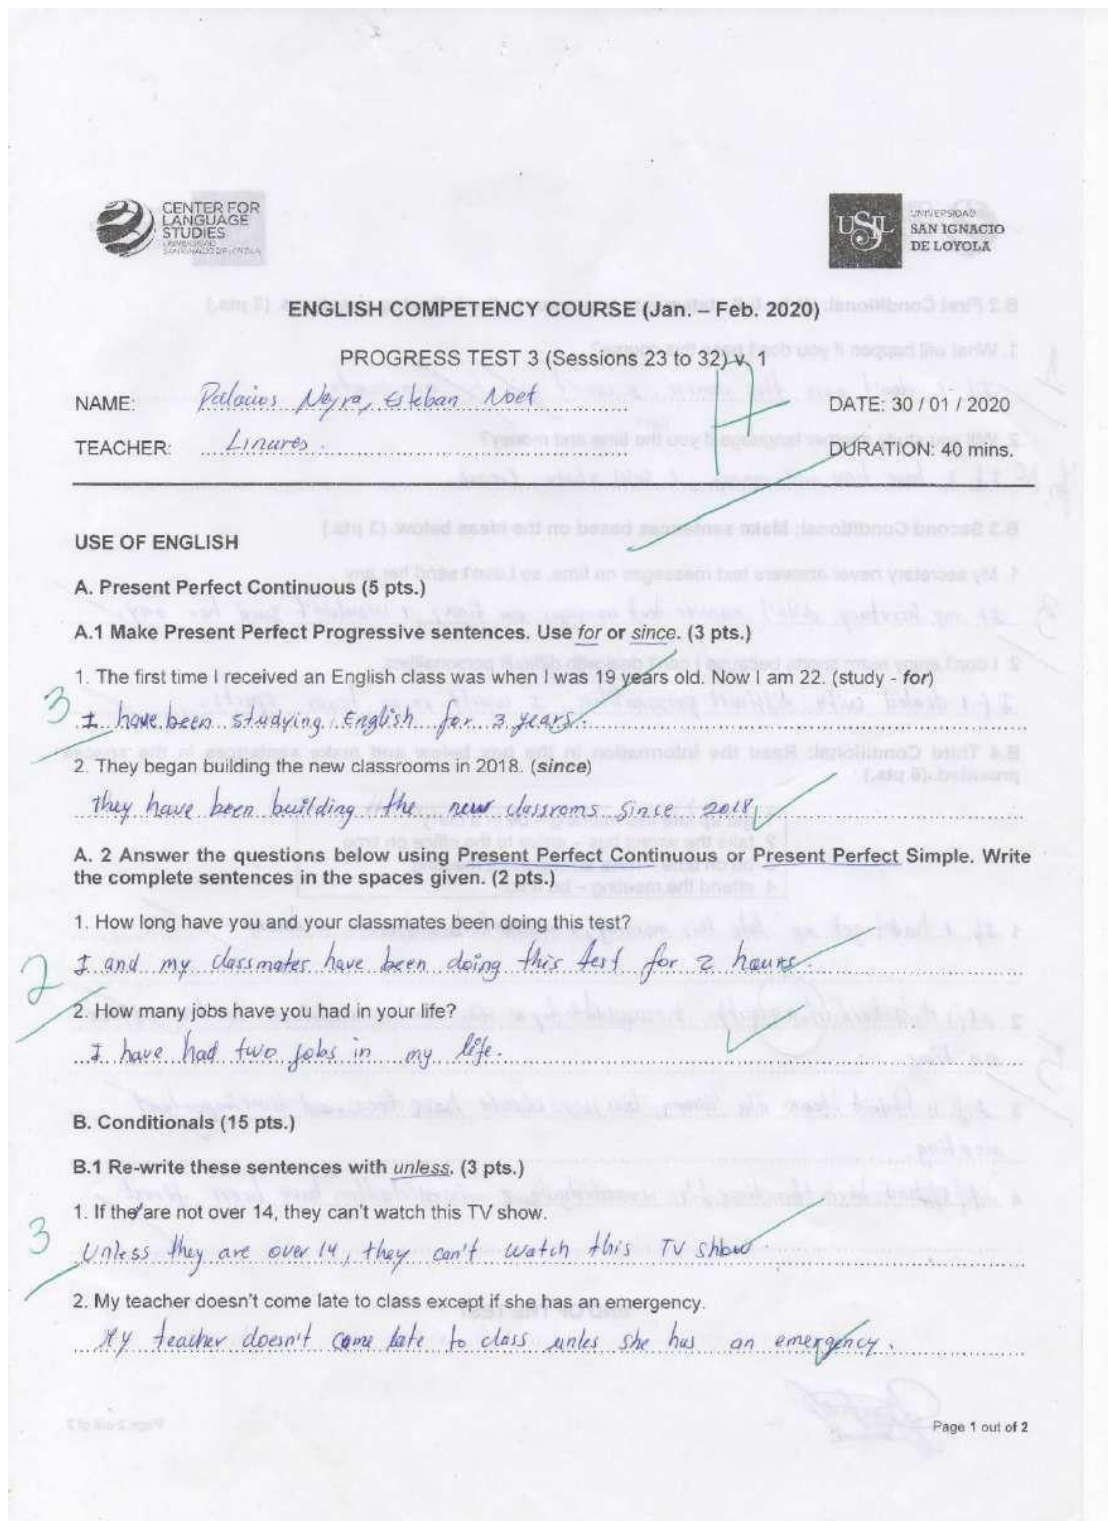 CENTER FOR
LANGUAGE
STUDIES
UNIVERSIDAD
SAN IGNACIO DE LOYOLA
USIL
UNIVERSIDAD
SAN IGNACIO
DE LOYOLA
ENGLISH COMPETENCY COURSE (Jan. – Feb. 2020)
PROGRESS TEST 3 (Sessions 23 to 32) v. 1
17
NAME: Palacios Neyra, Esteban Noet
DATE: 30 / 01 / 2020
TEACHER: Linares.
DURATION: 40 mins.
USE OF ENGLISH
A. Present Perfect Continuous (5 pts.)
A.1 Make Present Perfect Progressive sentences. Use for or since. (3 pts.)
1. The first time I received an English class was when I was 19 years old. Now I am 22. (study - for)
3
I have been studying English for 3 years.
2. They began building the new classrooms in 2018. (since)
They have been building the new classroms since 2018
A. 2 Answer the questions below using Present Perfect Continuous or Present Perfect Simple. Write
the complete sentences in the spaces given. (2 pts.)
1. How long have you and your classmates been doing this test?
2
I and my classmates have been doing this test for 2 hours.
2. How many jobs have you had in your life?
I have had two jobs in my life.
B. Conditionals (15 pts.)
B.1 Re-write these sentences with unless. (3 pts.)
1. If the are not over 14, they can't watch this TV show.
3
Unless they are over 14, they can't watch this TV show.
2. My teacher doesn't come late to class except if she has an emergency.
My teacher doesn't come late to class unles she has an emergency.
Page 1 out of 2